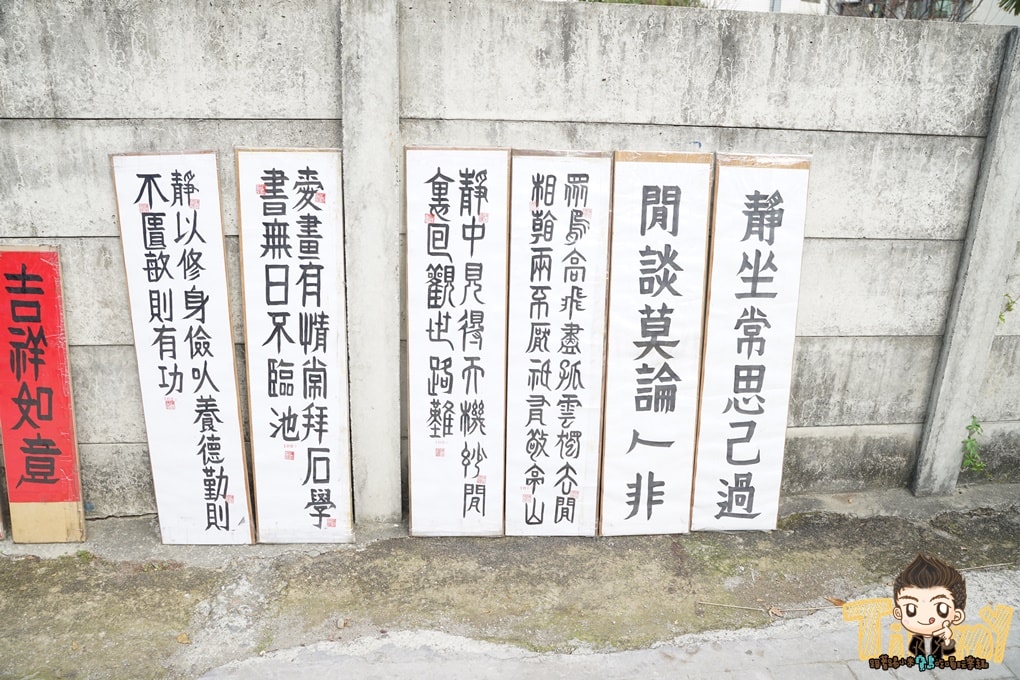 靜坐常思己過
閒談莫論人非
眾鳥高飛盡孤雲獨去閒
相看兩不厭祇有敬亭山
靜中見得天機妙閒
裏回觀世路難
愛畫有情常拜石學
書無日不臨池
靜以修身儉以養德勤則
不匱敏則有功
吉祥如意